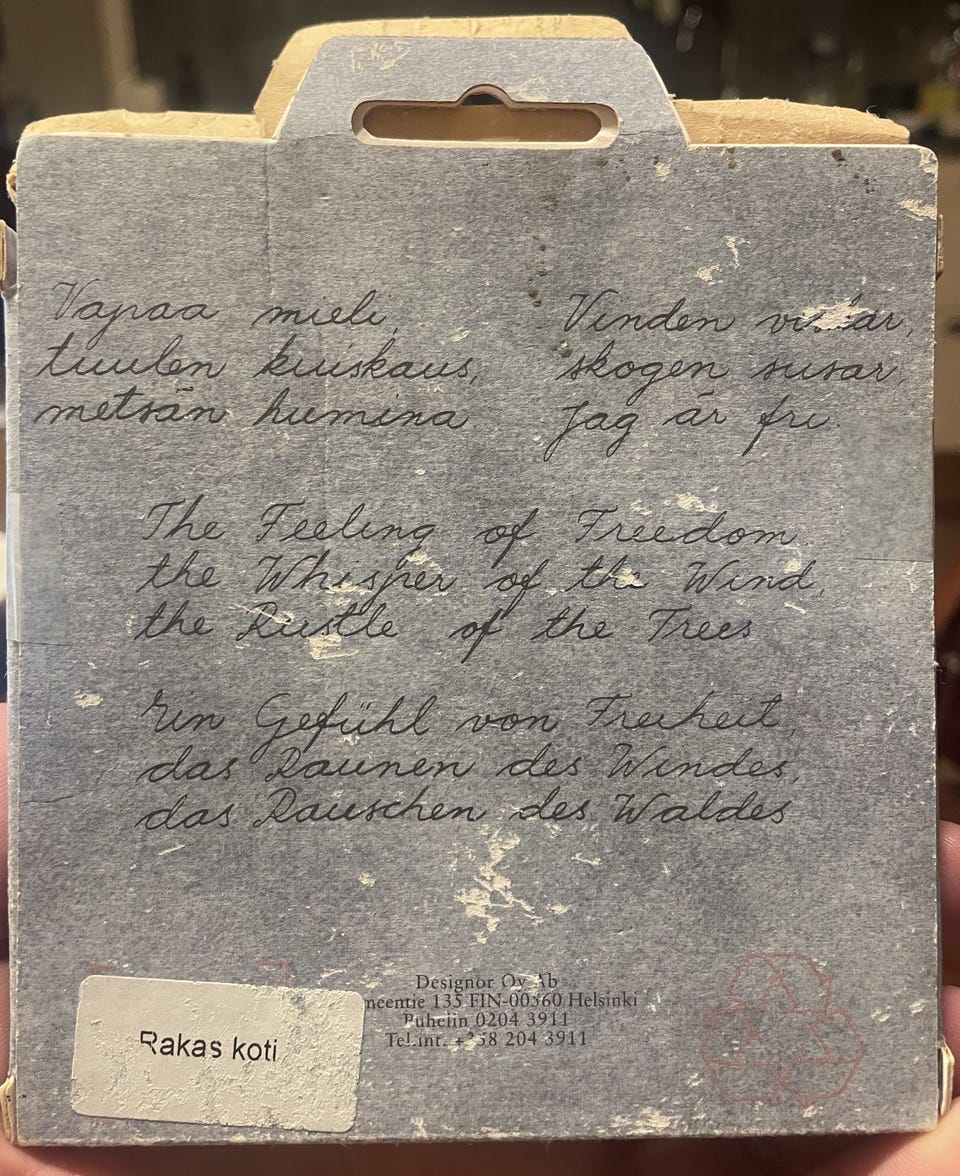 Vapaa mieli,
tuulen kuiskaus,
metsän humina
Vinden
skogen susar,
Jag är fri.
The Feeling of Freedom.
the Whisper of the Wind,
the Rustle of the Trees
Ein Gefühl von Freiheit,
das Raunen des Windes,
das Rauschen des Waldes
Designor Oy Ab
135 FIN-00560 Helsinki
Puhelin 0204 3911
Tel.int. +358 204 3911
Rakas koti